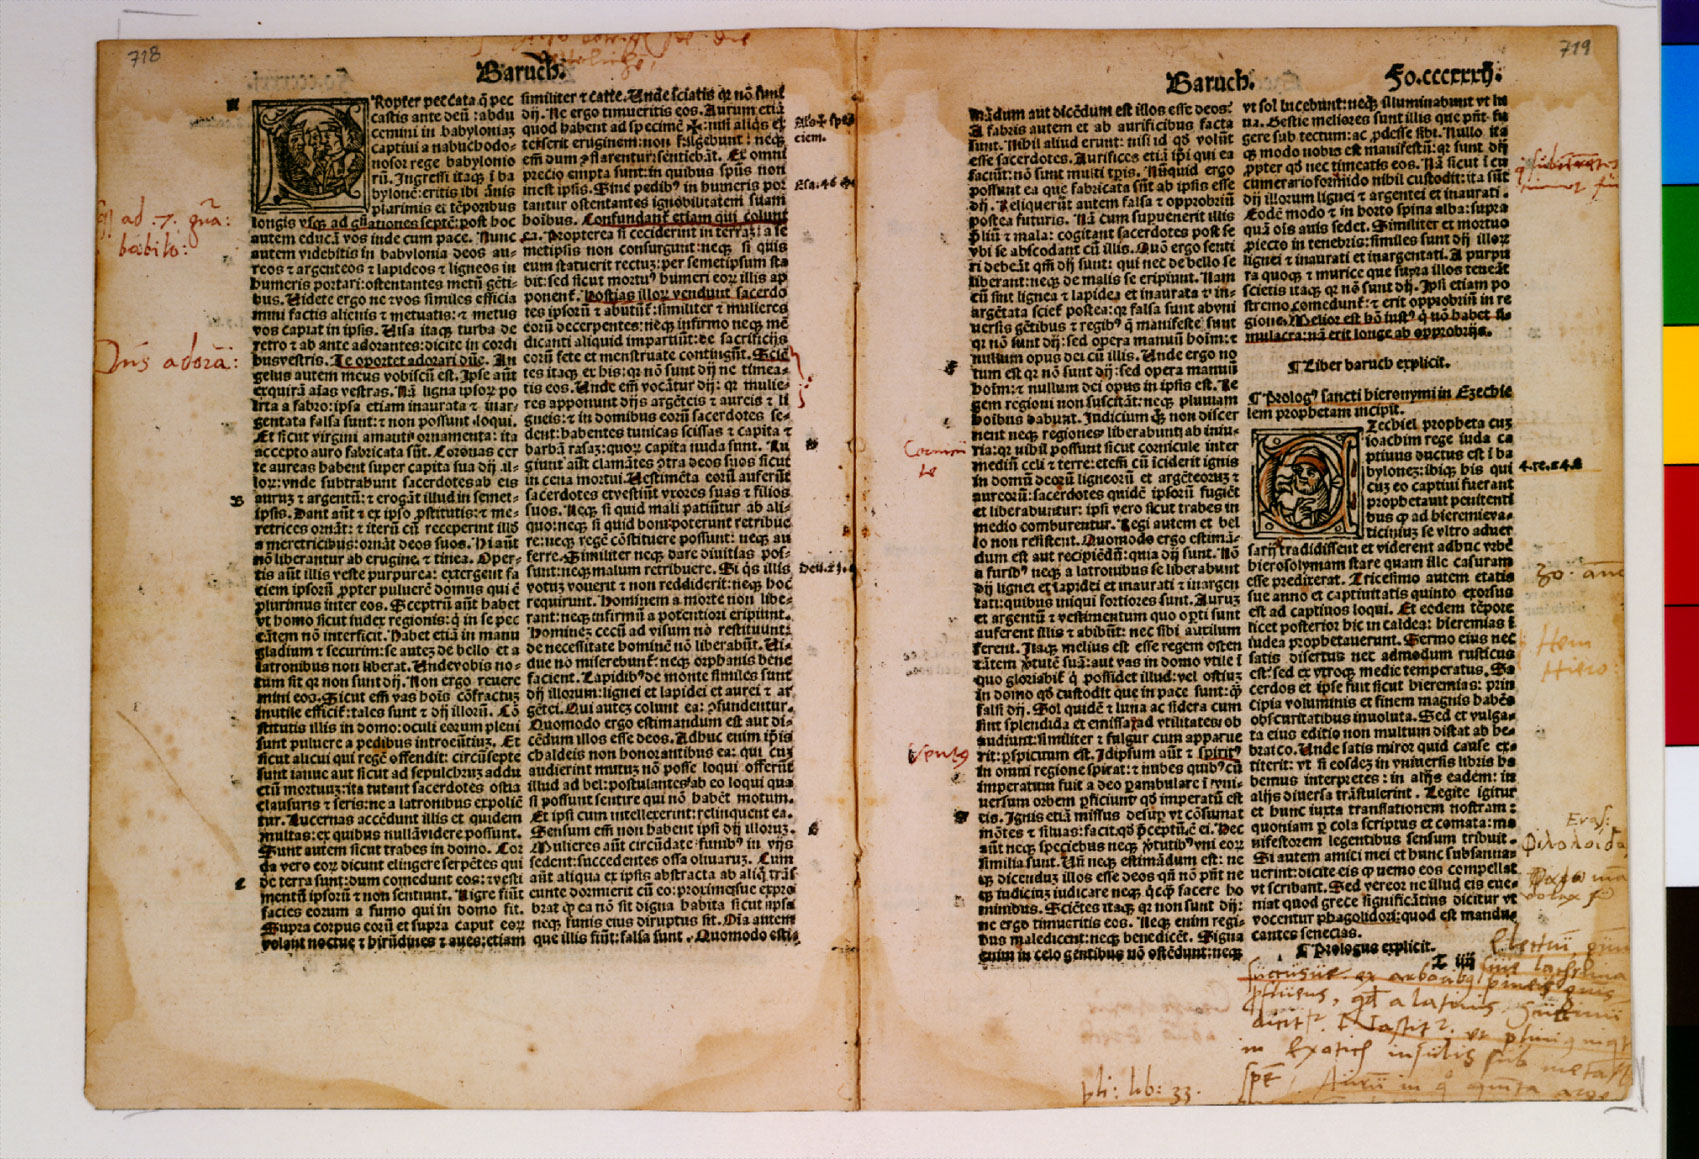 718
Baruch.
Ropter peccata q̄ pec
castis ante deū: abdu
cemini in babyloniaz
captiui a nabuchodo-
nosor rege babylonio
rū. Ingressi itaqȝ ī ba
bylonē: eritis ibi ānis
plurimis et tēporibus
longis vsqȝ ad gn̄ationes septē: post hoc
autem educā vos inde cum pace. Nunc
autem videbitis in babylonia deos au-
reos ⁊ argenteos ⁊ lapideos ⁊ ligneos in
humeris portari: ostentantes metū gēti-
bus. Videte ergo ne ⁊ vos similes efficia
mini factis alienis ⁊ metuatis: ⁊ metus
vos capiat in ipsis. Visa itaqȝ turba de
retro ⁊ ab ante adorantes: dicite in cordi
busvestris. Te oportet adorari dn̄e. An
gelus autem meus vobiscū est. Ipse aūt
exquirā aīas vestras. Nā ligna ipsoꝝ po
lita a fabro: ipsa etiam inaurata ⁊ inar-
gentata falsa sunt: ⁊ non possunt loqui.
Et sicut virgini amanti ornamenta: ita
accepto auro fabricata sūt. Coronas cer
te aureas habent super capita sua dij al-
loꝝ: vnde subtrahunt sacerdotes ab eis
auruz ⁊ argentū: ⁊ erogāt illud in semet-
ipsis. Dant aūt ⁊ ex ipso ꝓstitutis: ⁊ me-
retrices ornāt: ⁊ iterū cū receperint illō
a meretricibus: ornāt deos suos. Hi aūt
nō liberantur ab erugine ⁊ tinea. Oper-
tis aūt illis veste purpurea: extergent fa
ciem ipsoꝝ ꝓpter puluerē domus qui ē
plurimus inter eos. Sceptrū aūt habet
vt homo sicut iudex regionis: q̄ in se pec
cātem nō interficit. Habet etiā in manu
gladium ⁊ securim: se autez de bello et a
latronibus non liberat. Undevobis no-
tum sit qꝛ non sunt dij. Non ergo reuere
mini eos. Sicut em̄ vas hoīs cōfractuz
inutile efficit̄: tales sunt ⁊ dij illoꝝ. Cō
stitutis illis in domo: oculi eorum pleni
sunt puluere a pedibus introeūtiuz. Et
sicut alicui qui regē offendit: circūsepte
sunt ianue aut sicut ad sepulchruz addu
ctū mortuuz: ita tutant sacerdotes ostia
clausuris ⁊ seris: ne a latronibus expoliē
tur. Lucernas accēdunt illis et quidem
multas: ex quibus nullā videre possunt.
Sunt autem sicut trabes in domo. Cor
da vero eoꝝ dicunt elingere serpētes qui
de terra sunt: dum comedunt eos: ⁊ vesti
mentū ipsorū ⁊ non sentiunt. Nigre fiūt
facies eorum a fumo qui in domo fit.
Supra corpus eorū et supra caput eoꝝ
volant noctue ⁊ hirūdines ⁊ aues: etiam
similiter ⁊ catte. Unde sciatis qꝛ nō sunt
dij. Ne ergo timueritis eos. Aurum etiā
quod habent ad speciem ✠: nisi aliqs ex
terserit eruginem: non fulgebunt: neqȝ
em̄ dum ꝯflarentur: sentiebāt. Ex omni
precio empta sunt: in quibus spūs non
inest ipsis. Sine pedibꝰ in humeris por
tantur ostentantes ignobilitatem suam
hoībus. Confundant̄ etiam qui colunt
ea. Propterea si ceciderint in terraz: a se
metipsis non consurgunt: neqȝ si quis
eum statuerit rectuz: per semetipsum sta
bit: sed sicut mortuꝰ humeri eoꝝ illis ap
ponent̄. Hostias illoꝝ vendunt sacerdo
tes ipsorū ⁊ abutūt̄: similiter ⁊ mulieres
eorū decerpentes: neqȝ infirmo neqȝ mē
dicanti aliquid impartiūt: de sacrificijs
eorū fete et menstruate contingūt. Sciē
tes itaqȝ ex his: qꝛ nō sunt dij ne timea-
tis eos. Unde em̄ vocātur dij: qꝛ mulie-
res apponunt dijs argēteis ⁊ aureis ⁊ li
gneis: ⁊ in domibus eorū sacerdotes se-
dent: habentes tunicas scissas ⁊ capita ⁊
barbā rasaz: quoꝝ capita nuda sunt. Ru
giunt aūt clamātes ꝯtra deos suos sicut
in cena mortui. Vestimēta eorū auferūt
sacerdotes etvestiūt vxores suas ⁊ filios
suos. Neqȝ si quid mali patiūtur ab ali-
quo: neqȝ si quid boni: poterunt retribue
re: neqȝ regē cōstituere possunt: neqȝ au
ferre. Similiter neqȝ dare diuitias pos-
sunt: neqȝ malum retribuere. Si qs illis
votuz vouerit ⁊ non reddiderit: neqȝ hoc
requirunt. Hominem a morte non libe-
rant: neqȝ infirmū a potentiori eripiunt.
Hominez cecū ad visum nō restituunt:
de necessitate hominē nō liberabūt. Vi-
due nō miserebunt̄: neqȝ orphanis bene
facient. Lapidibꝰ de monte similes sunt
dij illorum: lignei et lapidei et aurei ⁊ ar
gētei. Qui autez colunt ea: ꝯfundentur.
Quomodo ergo estimandum est aut di-
cēdum illos esse deos. Adhuc enim ip̄is
chaldeis non honorantibus ea: qui cuz
audierint mutuz nō posse loqui offerūt
illud ad bel: postulantes ab eo loqui qua
si possunt sentire qui nō habēt motum.
Et ipsi cum intellexerint: relinquent ea.
Sensum em̄ non habent ipsi dij illoruz.
Mulieres aūt circūdate funibꝰ in vijs
sedent: succedentes ossa oliuaruz. Cum
aūt aliqua ex ipsis abstracta ab aliq̄ trās
eunte dormierit cū eo: proximesue expro
brat qꝛ ea nō sit digna habita sicut ipsa
neqȝ funis eius diruptus sit. Oīa autem
que illis fiūt: falsa sunt. Quomodo esti-
Als✠ spē
ciem.
Esa. 46
Deu. 23.
ad .7. gn̄a:
babilo:
Dn̄s adorā:
719
Baruch. Fo.cccxxxij.
mādum aut dicēdum est illos esse deos:
A fabris autem et ab aurificibus facta
sunt. Nihil aliud erunt: nisi id qd̄ volūt
esse sacerdotes. Aurifices etiā ip̄i qui ea
faciūt: nō sunt multi tp̄is. Nūquid ergo
possunt ea que fabricata sūt ab ipsis esse
dij. Reliquerūt autem falsa ⁊ opprobriū
postea futuris. Nā cum supuenerit illis
ꝓliū ⁊ mala: cogitant sacerdotes post se
vbi se abscōdant cū illis. Quō ergo senti
ri debeāt qm̄ dij sunt: qui nec de bello se
liberant: neqȝ de malis se eripiunt. Nam
cū sint lignea ⁊ lapidea et inaurata ⁊ in-
argētata sciet̄ postea: qꝛ falsa sunt ab vni
uersis gētibus ⁊ regibꝰ q̄ manifeste sunt
qꝛ nō sunt dij: sed opera manuū hoīm: ⁊
nullum opus dei cū illis. Unde ergo no
tum est qꝛ nō sunt dij: sed opera manuū
hoīm: ⁊ nullum dei opus in ipsis est. Re
gem regioni non suscitāt: neqȝ pluuiam
hoībus dabunt. Judicium qȝ non discer
nent neqȝ regiones liberabunt: ab iniu-
ria: qꝛ nihil possunt sicut cornicule inter
mediū celi ⁊ terre: etem̄ cū īciderit ignis
in domū deorū ligneorū et argēteoruz ⁊
aureorū: sacerdotes quidē ipsorū fugiēt
et liberabuntur: ipsi vero sicut trabes in
medio comburentur. Regi autem et bel
lo non resistent. Quomodo ergo estimā-
dum est aut recipiēdū: quia dij sunt. Nō
a furibꝰ neqȝ a latronibus se liberabunt
dij lignei et lapidei et inaurati ⁊ inargen
tati: quibus iniqui fortiores sunt. Auruz
et argentū ⁊ vestimentum quo opti sunt
auferent illis ⁊ abibūt: nec sibi auxilium
ferent. Itaqȝ melius est esse regem osten
tātem ꝟtutē suā: aut vas in domo vtile ī
quo gloriabit̄ q̄ possidet illud: vel ostiuz
in domo qd̄ custodit que in pace sunt: q̄
falsi dij. Sol quidē ⁊ luna ac sidera cum
sint splendida et emissa ad vtilitates ob
audiunt: similiter ⁊ fulgur cum apparue
rit: ꝑspicuum est. Idipsum aūt ⁊ spiritꝰ
in omni regione spirat: ⁊ nubes quibꝰ cū
imperatum fuit a deo ꝑambulare ī vni-
uersum orbem ꝑficiunt qd̄ imperatū est
eis. Ignis etiā missus desuꝑ vt cōsumat
mōtes ⁊ siluas: facit qd̄ p̄ceptū ē ei. Hec
aūt neqȝ speciebus neqȝ ꝟtutibꝰ vni eoꝝ
similia sunt. Un̄ neqȝ estimādum est: ne
qȝ dicenduz illos esse deos qn̄ nō pn̄t ne
qȝ iudiciuz iudicare neqȝ qcqȝ facere ho
minibus. Sciētes itaqȝ qꝛ non sunt dij:
ne ergo timueritis eos. Neqȝ enim regi-
bus maledicent: neqȝ benedicēt. Signa
etiam in celo gentibus nō ostēdunt: neqȝ
vt sol lucebunt: neqȝ illuminabunt vt lu
na. Bestie meliores sunt illis que pn̄t fu
gere sub tectum: ac ꝓdesse sibi. Nullo ita
qȝ modo nobis est manifestū: qꝛ sunt dij
ꝓpter qd̄ nec timeatis eos. Nā sicut ī cu
cumerario formido nihil custodit: ita sūt
dij illorum lignei ⁊ argentei et inaurati.
Eodē modo ⁊ in horto spina alba: supra
quā oīs auis sedet. Similiter et mortuo
ꝓiecto in tenebris: similes sunt dij illoꝝ
lignei ⁊ inaurati et inargentati. A purpu
ra quoqȝ ⁊ murice que supra illos teneāt
scietis itaqȝ qꝛ nō sunt dij. Ipsi etiam po
stremo comedunt̄: ⁊ erit opprobriū in re
gione. Melior est hō iustꝰ q̄ nō habet si-
mulacra: nā erit longe ab opprobrijs.
¶ Liber baruch explicit.
¶ Prologꝰ sancti hieronymi in Ezechie
lem prophetam incipit.
Ezechiel propheta cuz
ioachim rege iuda ca
ptiuus ductus est ī ba
bylonez: ibiqȝ his qui
cuz eo captiui fuerant
prophetauit penitenti
bus qꝙ ad hieremieva-
ticiniuz se vltro aduer
sarijs tradidissent et viderent adhuc vrbē
hierosolymam stare quam ille casuram
esse predixerat. Tricesimo autem etatis
sue anno et captiuitatis quinto exorsus
est ad captiuos loqui. Et eodem tēpore
licet posterior hic in caldea: hieremias ī
iudea prophetauerunt. Sermo eius nec
satis disertus nec admodum rusticus
est: sed ex vtroqȝ medie temperatus. Sa
cerdos et ipse fuit sicut hieremias: prin
cipia voluminis et finem magnis habēs
obscuritatibus inuoluta. Sed et vulga-
ta eius editio non multum distat ab he-
braico. Unde satis miror quid cause ex-
titerit: vt si eosdez in vniuersis libris ha
bemus interpretes: in alijs eadem: in
alijs diuersa trāstulerint. Legite igitur
et hunc iuxta translationem nostram:
quoniam ꝑ cola scriptus et comata: ma
nifestorem legentibus sensum tribuit.
Si autem amici mei et hunc subsanna-
uerint: dicite eis qꝙ nemo eos compellat
vt scribant. Sed vereor ne illud eis eue-
niat quod grece significātius dicitur vt
vocentur phagolidori: quod est mandu-
cantes senecias.
¶ Prologus explicit.
T iiij
4. re. 24.
Spirtꝰ
30: ann
Hiero
Eras:
pli: lib: 33.